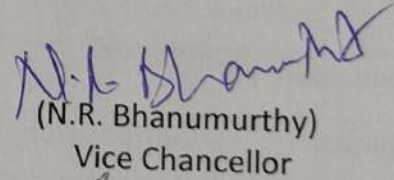 N.R Bhanumurthy
(N.R. Bhanumurthy)
Vice Chancellor